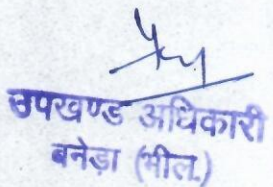 उपखण्ड अधिकारी
बनेड़ा (भील.)